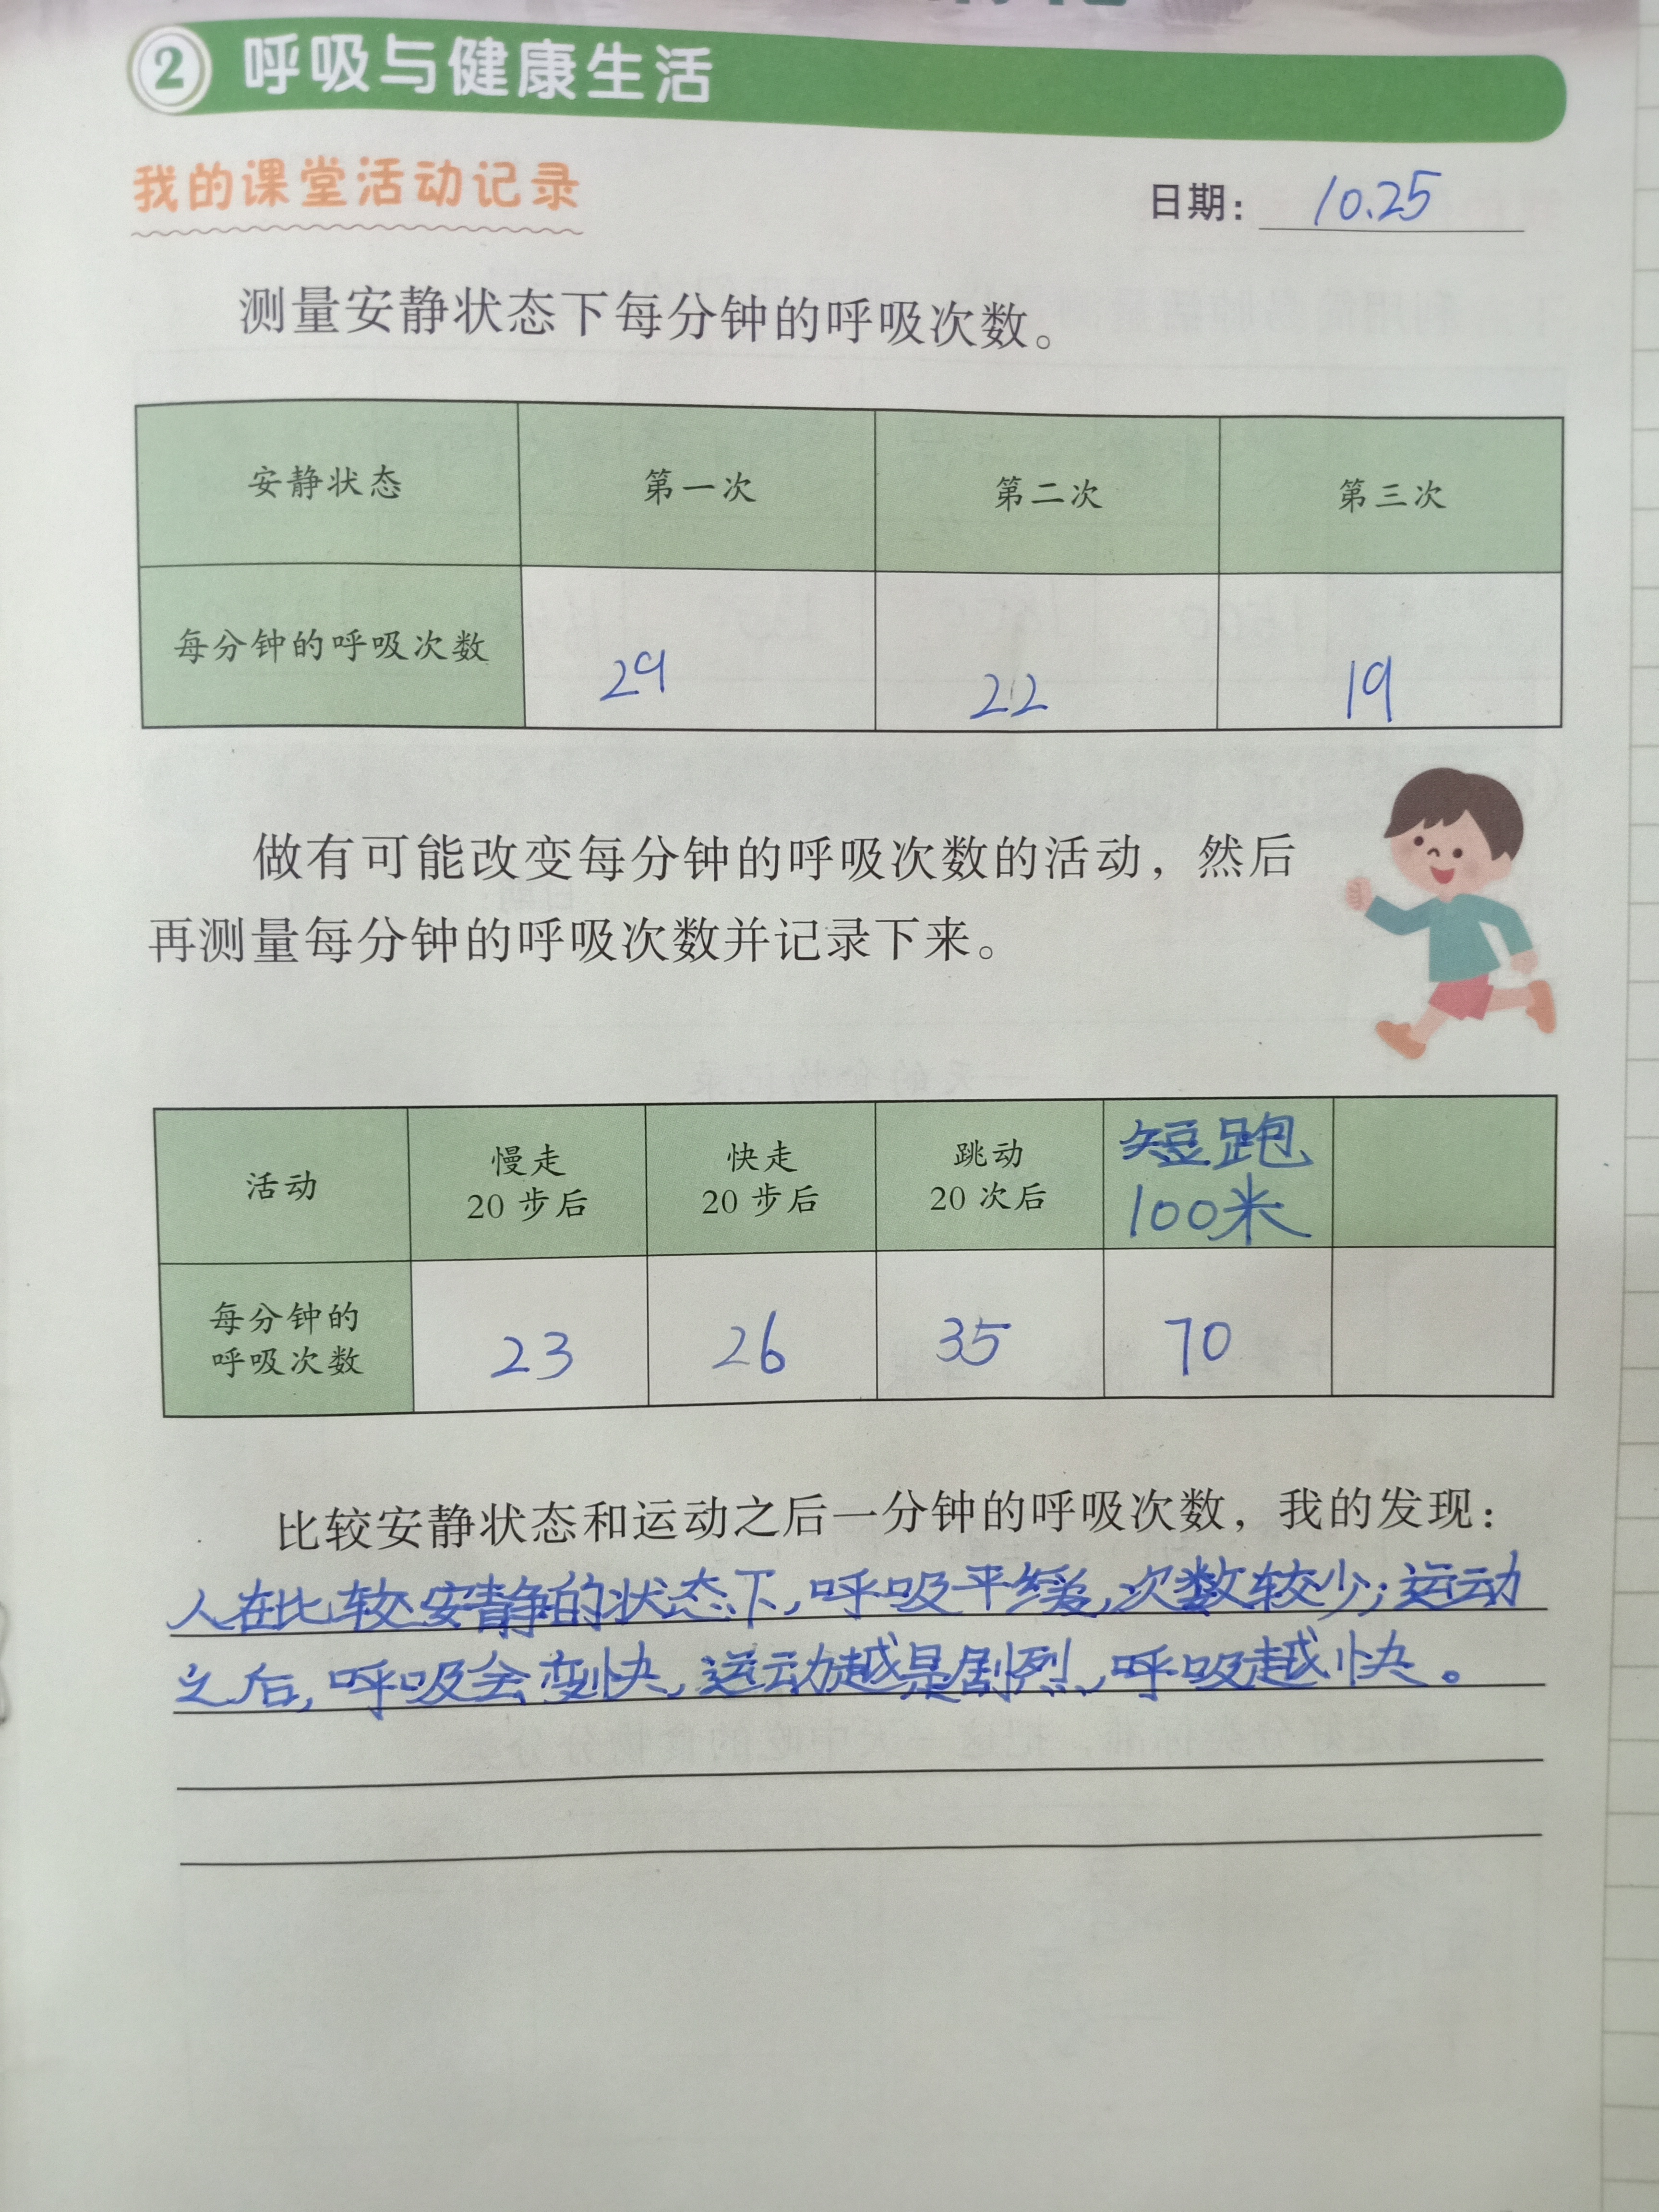 2 呼吸与健康生活
我的课堂活动记录
日期: 10.25
测量安静状态下每分钟的呼吸次数。
安静状态 第一次 第二次 第三次
每分钟的呼吸次数 29 22 19
做有可能改变每分钟的呼吸次数的活动，然后
再测量每分钟的呼吸次数并记录下来。
活动 慢走 20 步后 快走 20 步后 跳动 20 次后 短跑 100米
每分钟的 呼吸次数 23 26 35 70
比较安静状态和运动之后一分钟的呼吸次数，我的发现：
人在比较安静的状态下,呼吸平缓,次数较少;运动
之后,呼吸会变快,运动越是剧烈,呼吸越快。